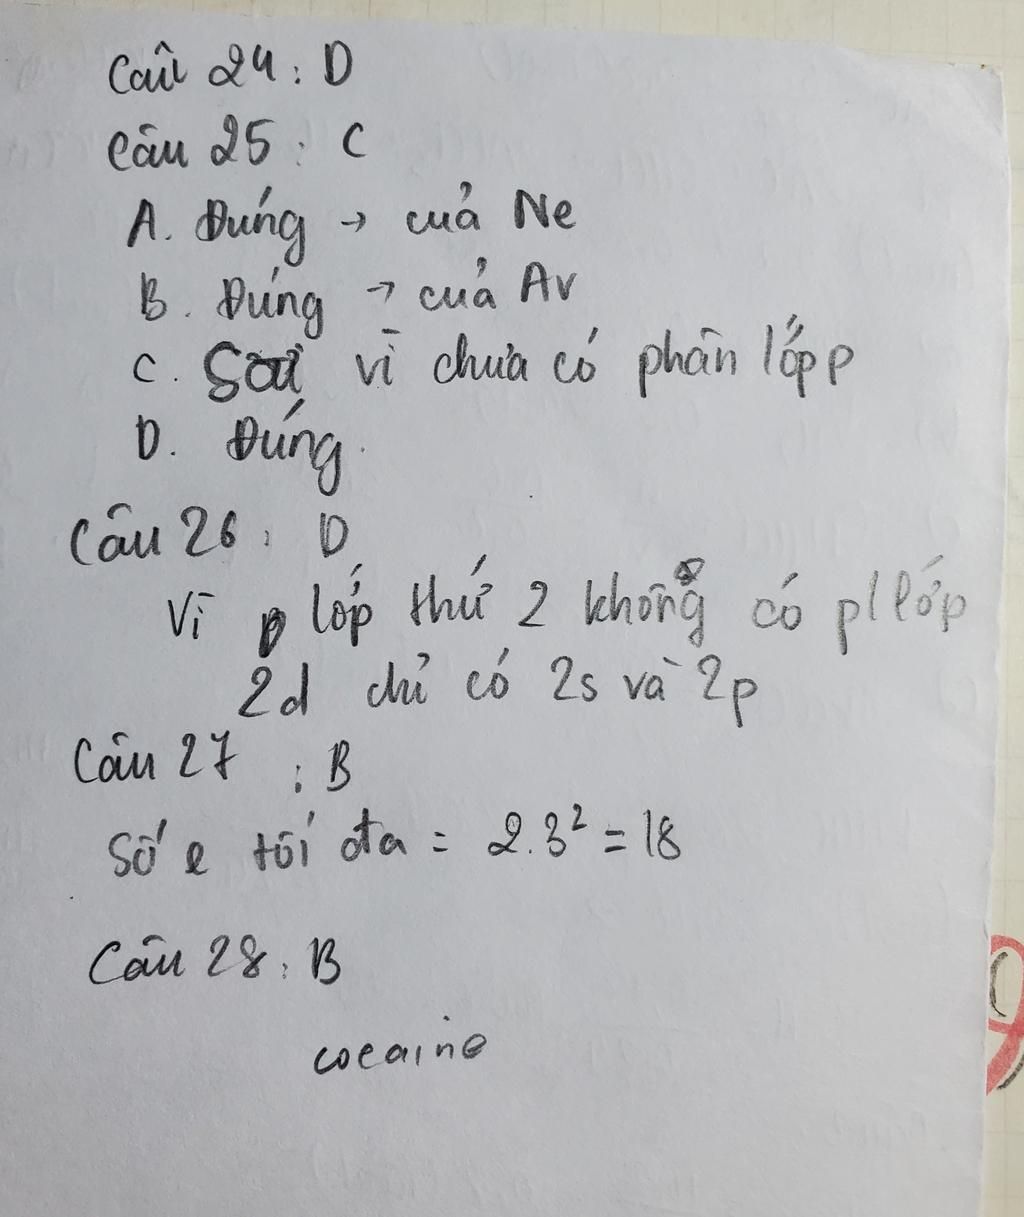 Câu 24: D
Câu 25: C
A. Đúng → cuả Ne
B. Đúng → cuả Ar
C. Sai vì chưa có phân lớp p
D. Đúng.
Câu 26: D
Vì lớp thứ 2 không có pl lớp
2d chỉ có 2s và 2p
Câu 27: B
Số e tối đa = 2.3² = 18
Câu 28: B
cocaine